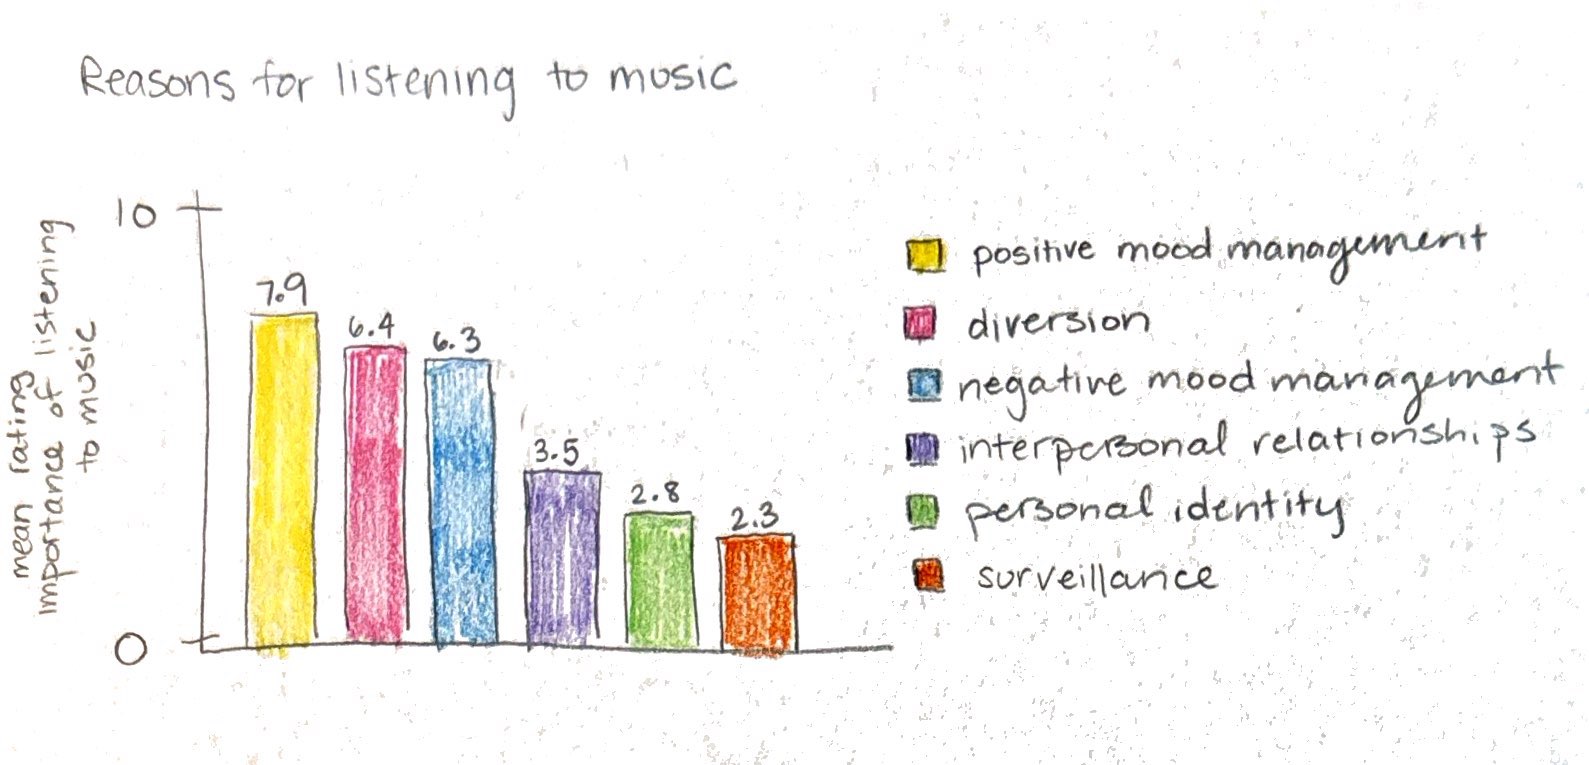 Reasons for listening to music
mean rating
importance of listening
to music
10
0
7.9
6.4
6.3
3.5
2.8
2.3
positive mood management
diversion
negative mood management
interpersonal relationships
personal identity
surveillance